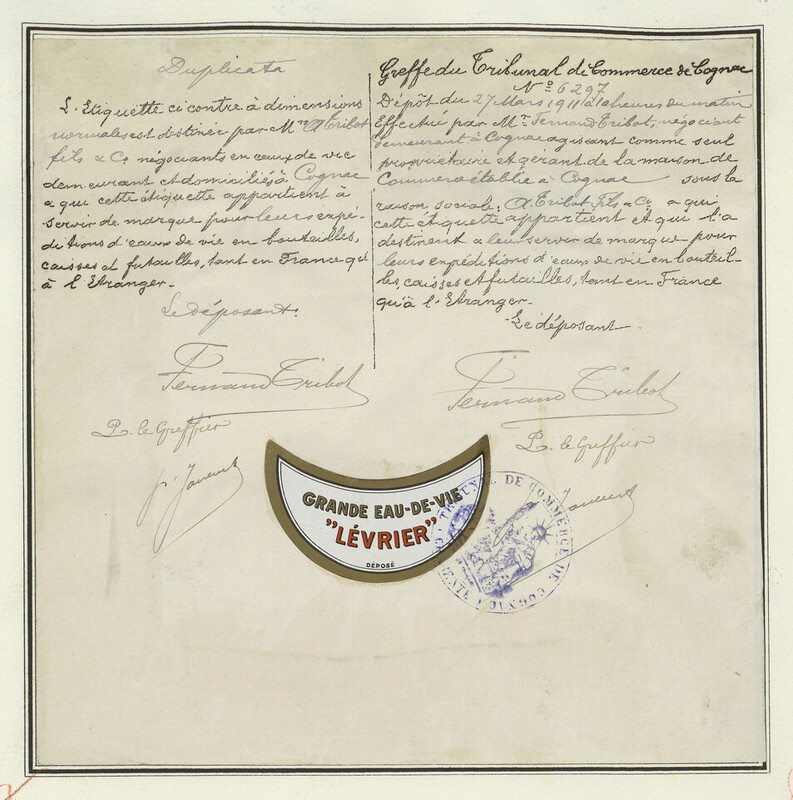 Duplicata
L'Etiquette ci contre à dimensions
normales est destinée par Mrs A Tribot
fils & Co négociants en eaux de vie
demeurant et domiciliés à Cognac
a qui cette étiquette appartient à
servir de marque pour leurs expé-
ditions d'eaux de vie en bouteilles,
caisses et futailles, tant en France qu'
à l'Etranger.
Le déposant.
Fernand Tribot
P. le Greffier
Greffe du Tribunal de Commerce de Cognac
No 6297
Dépôt du 27 Mars 1911 à 10 heures du matin
Effectué par Mr Fernand Tribot, négociant
demeurant à Cognac agissant comme seul
propriétaire et gérant de la maison de
Commerce établie à Cognac sous la
raison sociale: A Tribot Fils & Co a qui
cette étiquette appartient et qui l'a
destinent a leur servir de marque pour
leurs expéditions d'eaux de vie en bouteil-
les, caisses et futailles, tant en France
qu'à l'Etranger.
Le déposant
Fernand Tribot
P. le Greffier
GRANDE EAU-DE-VIE
"LÉVRIER"
DÉPOSÉ
TRIBUNAL DE COMMERCE DE COGNAC